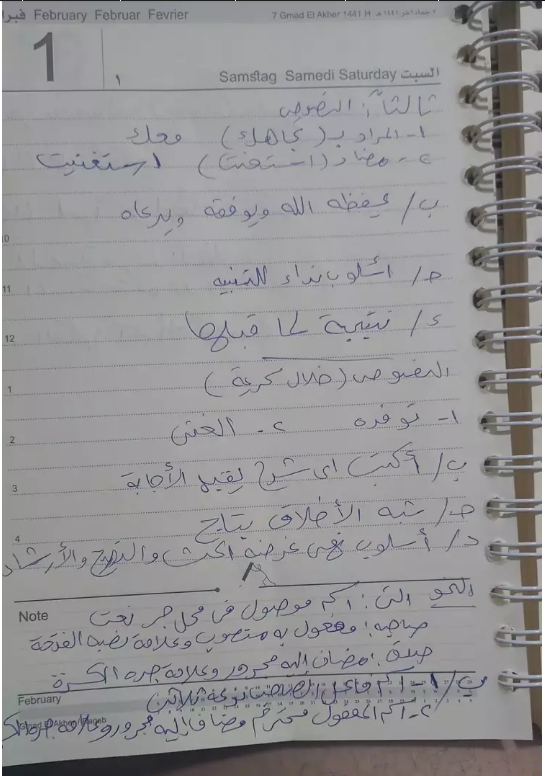 فبراير February Februar Fevrier
7 Gmad El Akher 1441 H
1
١
السبت Samstag Samedi Saturday
ثالثاً: النصوص
١- المراد بـ (تجاهك) معك
٢- مضاد (استعنت) استغنيت
ب/ يحفظه الله ويوفقه ويرعاه
10
11
حـ/ أسلوب نداء للتنبيه
12
د/ نتيجة لما قبلها
1
النصوص (خلال كريمة)
2
١- توفره ٢- الغنى
3
ب/ أكتب اى شرح يفيد الأجابة
4
حـ/ شبه الأخلاق بتاج
د/ أسلوب نهى غرضه الحث والنصح والأرشاد
Note
النحو التى: اسم موصول فى محل جر نعت
صاحبه: مفعول به منصوب وعلامة نصبه الفتحة
صديق: مضاف إليه مجرور وعلامة جره الكسرة
February
ب/ ١- اسم فاعل
٢- اسم المفعول محترم مضاف إليه مجرور وعلامة جره